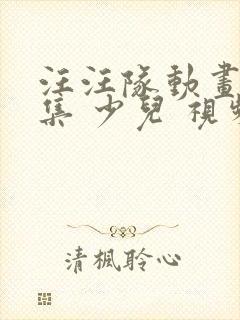 汪汪隊動畫
集 少兒 視頻
清楓聆心